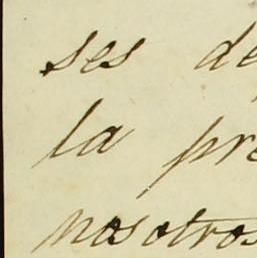 ses de
la pre
nosotros